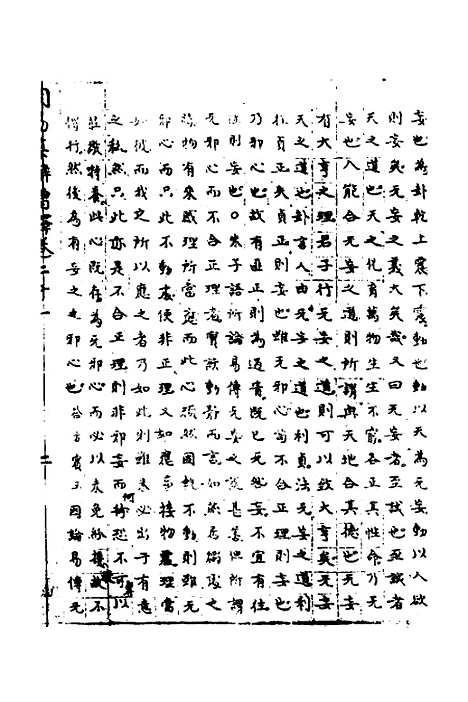 妄也為卦乾上震下震動也動以天為无妄動以人欲
則妄矣无妄之義大矣哉又曰无妄者至誠也至誠者
天之道也天之化育萬物生生不窮各正其性命乃无
妄也人能合无妄之道則所謂與天地合其德也无妄
有大亨之理君子行无妄之道則可以致大亨矣无妄
天之道也卦言人由无妄之道也利貞法无妄之道利
在貞正失貞正則妄也雖无邪心苟不合正理則妄也
乃邪心也故有匪正則為過眚既已无妄不宜有往
往則妄也○朱子語所論易傳无妄之說甚善但所謂
无邪心而不合正理者實該動靜而言如燕居獨處之
際物有來感理所當應而此心頑然固執不動則雖无
邪心而只此不動處便非正理又如應事接物處理當
如彼而我之所以應之者乃如此則雖未必出于有意
之私然只此亦是不合正理則非邪妄而何恐不可以
莊敬持養此心既存為无邪心而必以未免紛擾
然後為有妄之之邪心也 因論易傳无
二